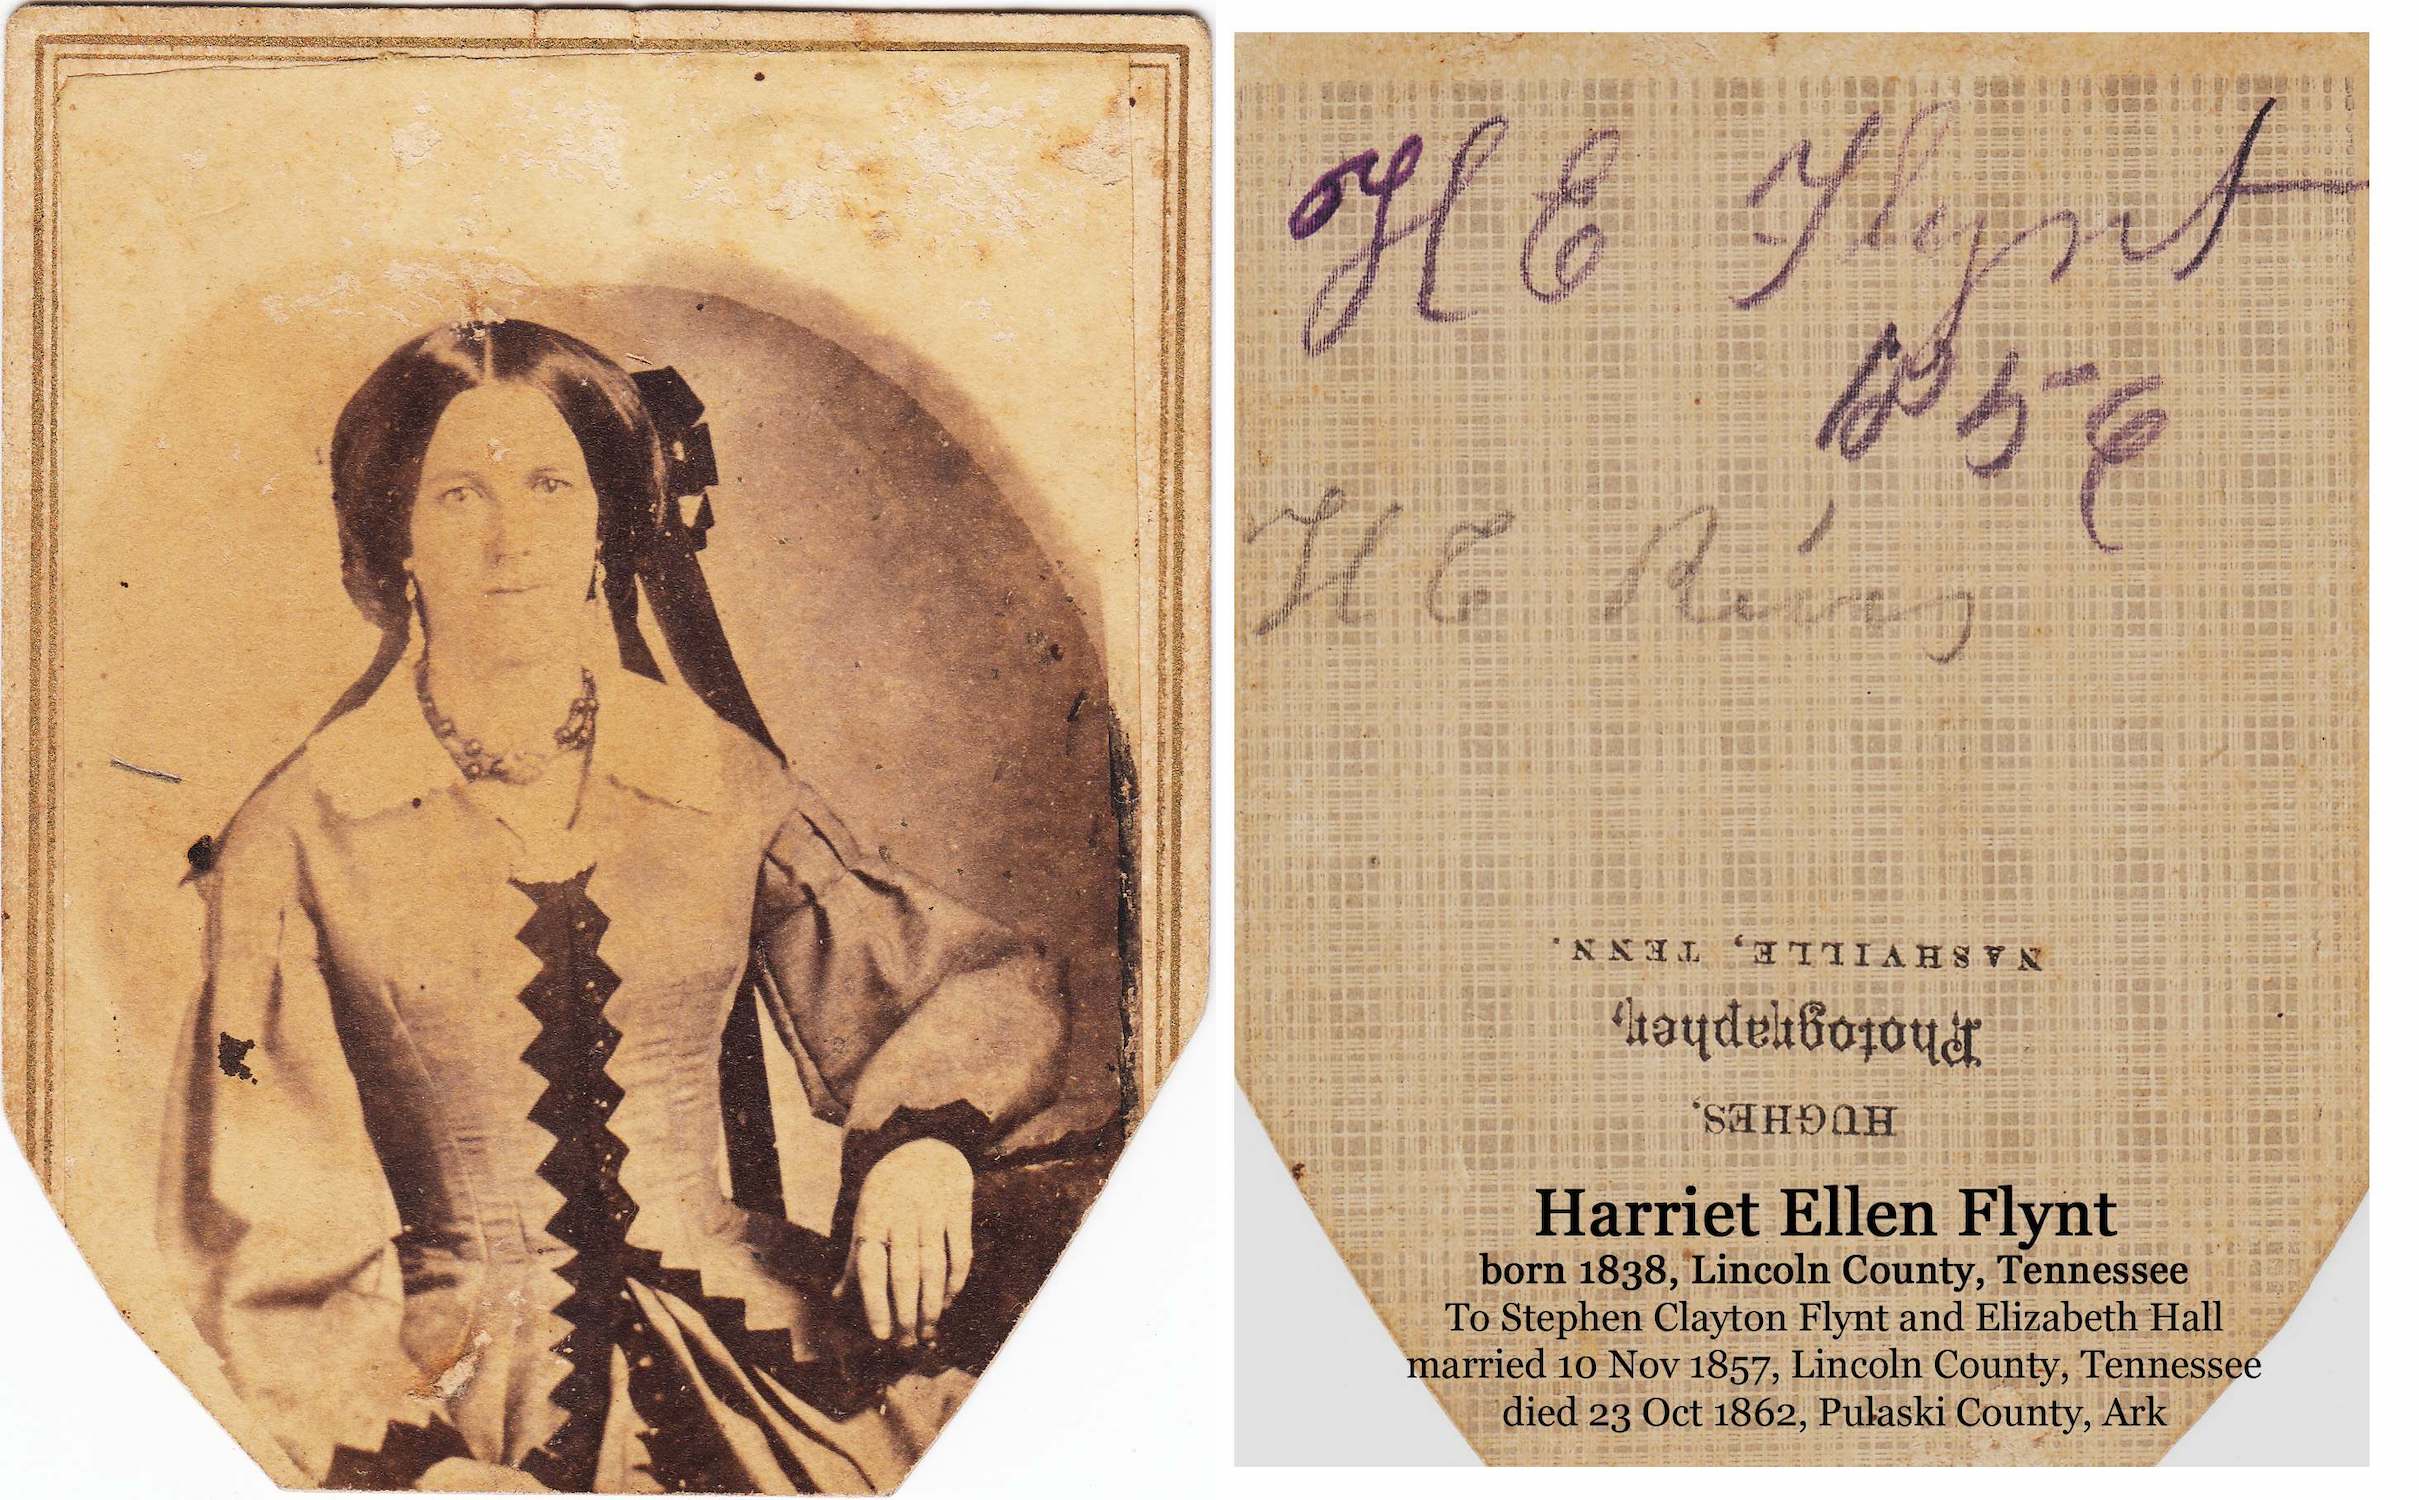 H E Flynt
H E Rives
HUGHES.
Photographer,
NASHVILLE, TENN.
Harriet Ellen Flynt
born 1838, Lincoln County, Tennessee
To Stephen Clayton Flynt and Elizabeth Hall
married 10 Nov 1857, Lincoln County, Tennessee
died 23 Oct 1862, Pulaski County, Ark